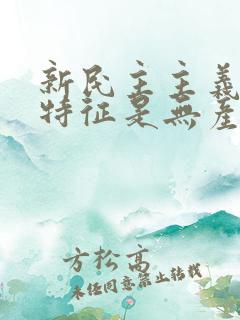 新民主主義
特征是無產
方松高
未经同意禁止转载